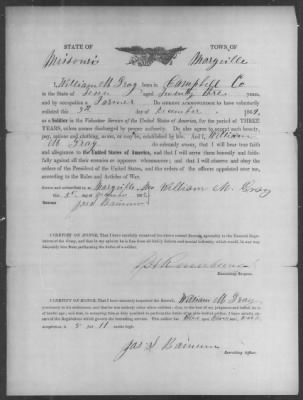 STATE OF TOWN OF
Missouri Maryville
I, William M. Gray born in Campbell Co
in the State of Tenn aged Twenty three years,
and by occupation a Farmer Do HEREBY ACKNOWLEDGE to have voluntarily
enlisted this day of December
as a Soldier in the Volunteer Service of the United States of America, for the period of THREE
YEARS, unless sooner discharged by proper authority: Do also agree to accept such bounty,
pay, rations and clothing, as are, or may be, established by law. And I, William
M. Gray do solemnly swear, that I will bear true faith
and allegiance to the United States of America, and that I will serve them honestly and faith-
fully against all their enemies or opposers whomsoever; and that I will observe and obey the
orders of the President of the United States, and the orders of the officers appointed over me,
according to the Rules and Articles of War.
Sworn and subscribed to at Maryville, Mo William M. Gray
this
Jas S Bainum
I CERTIFY ON HONOR, That I have carefully examined the above named Recruit, agreeably to the General Regulations
of the Army, and that in my opinion he is free from all bodily defects and mental infirmity, which would, in any way,
disqualify him from performing the duties of a soldier.
Examining Surgeon.
I CERTIFY ON HONOR, That I have minutely inspected the Recruit, William M Gray
previously to his enlistment, and that he was entirely sober when enlisted; that, to the best of my judgment and belief, he is
of lawful age; and that, in accepting him as duly qualified to perform the duties of an able-bodied soldier, I have strictly ob-
served the Regulations which govern the recruiting service. This soldier has eyes, hair,
complexion, is 5 feet 11 inches high.
Jas S Bainum
Recruiting Officer.